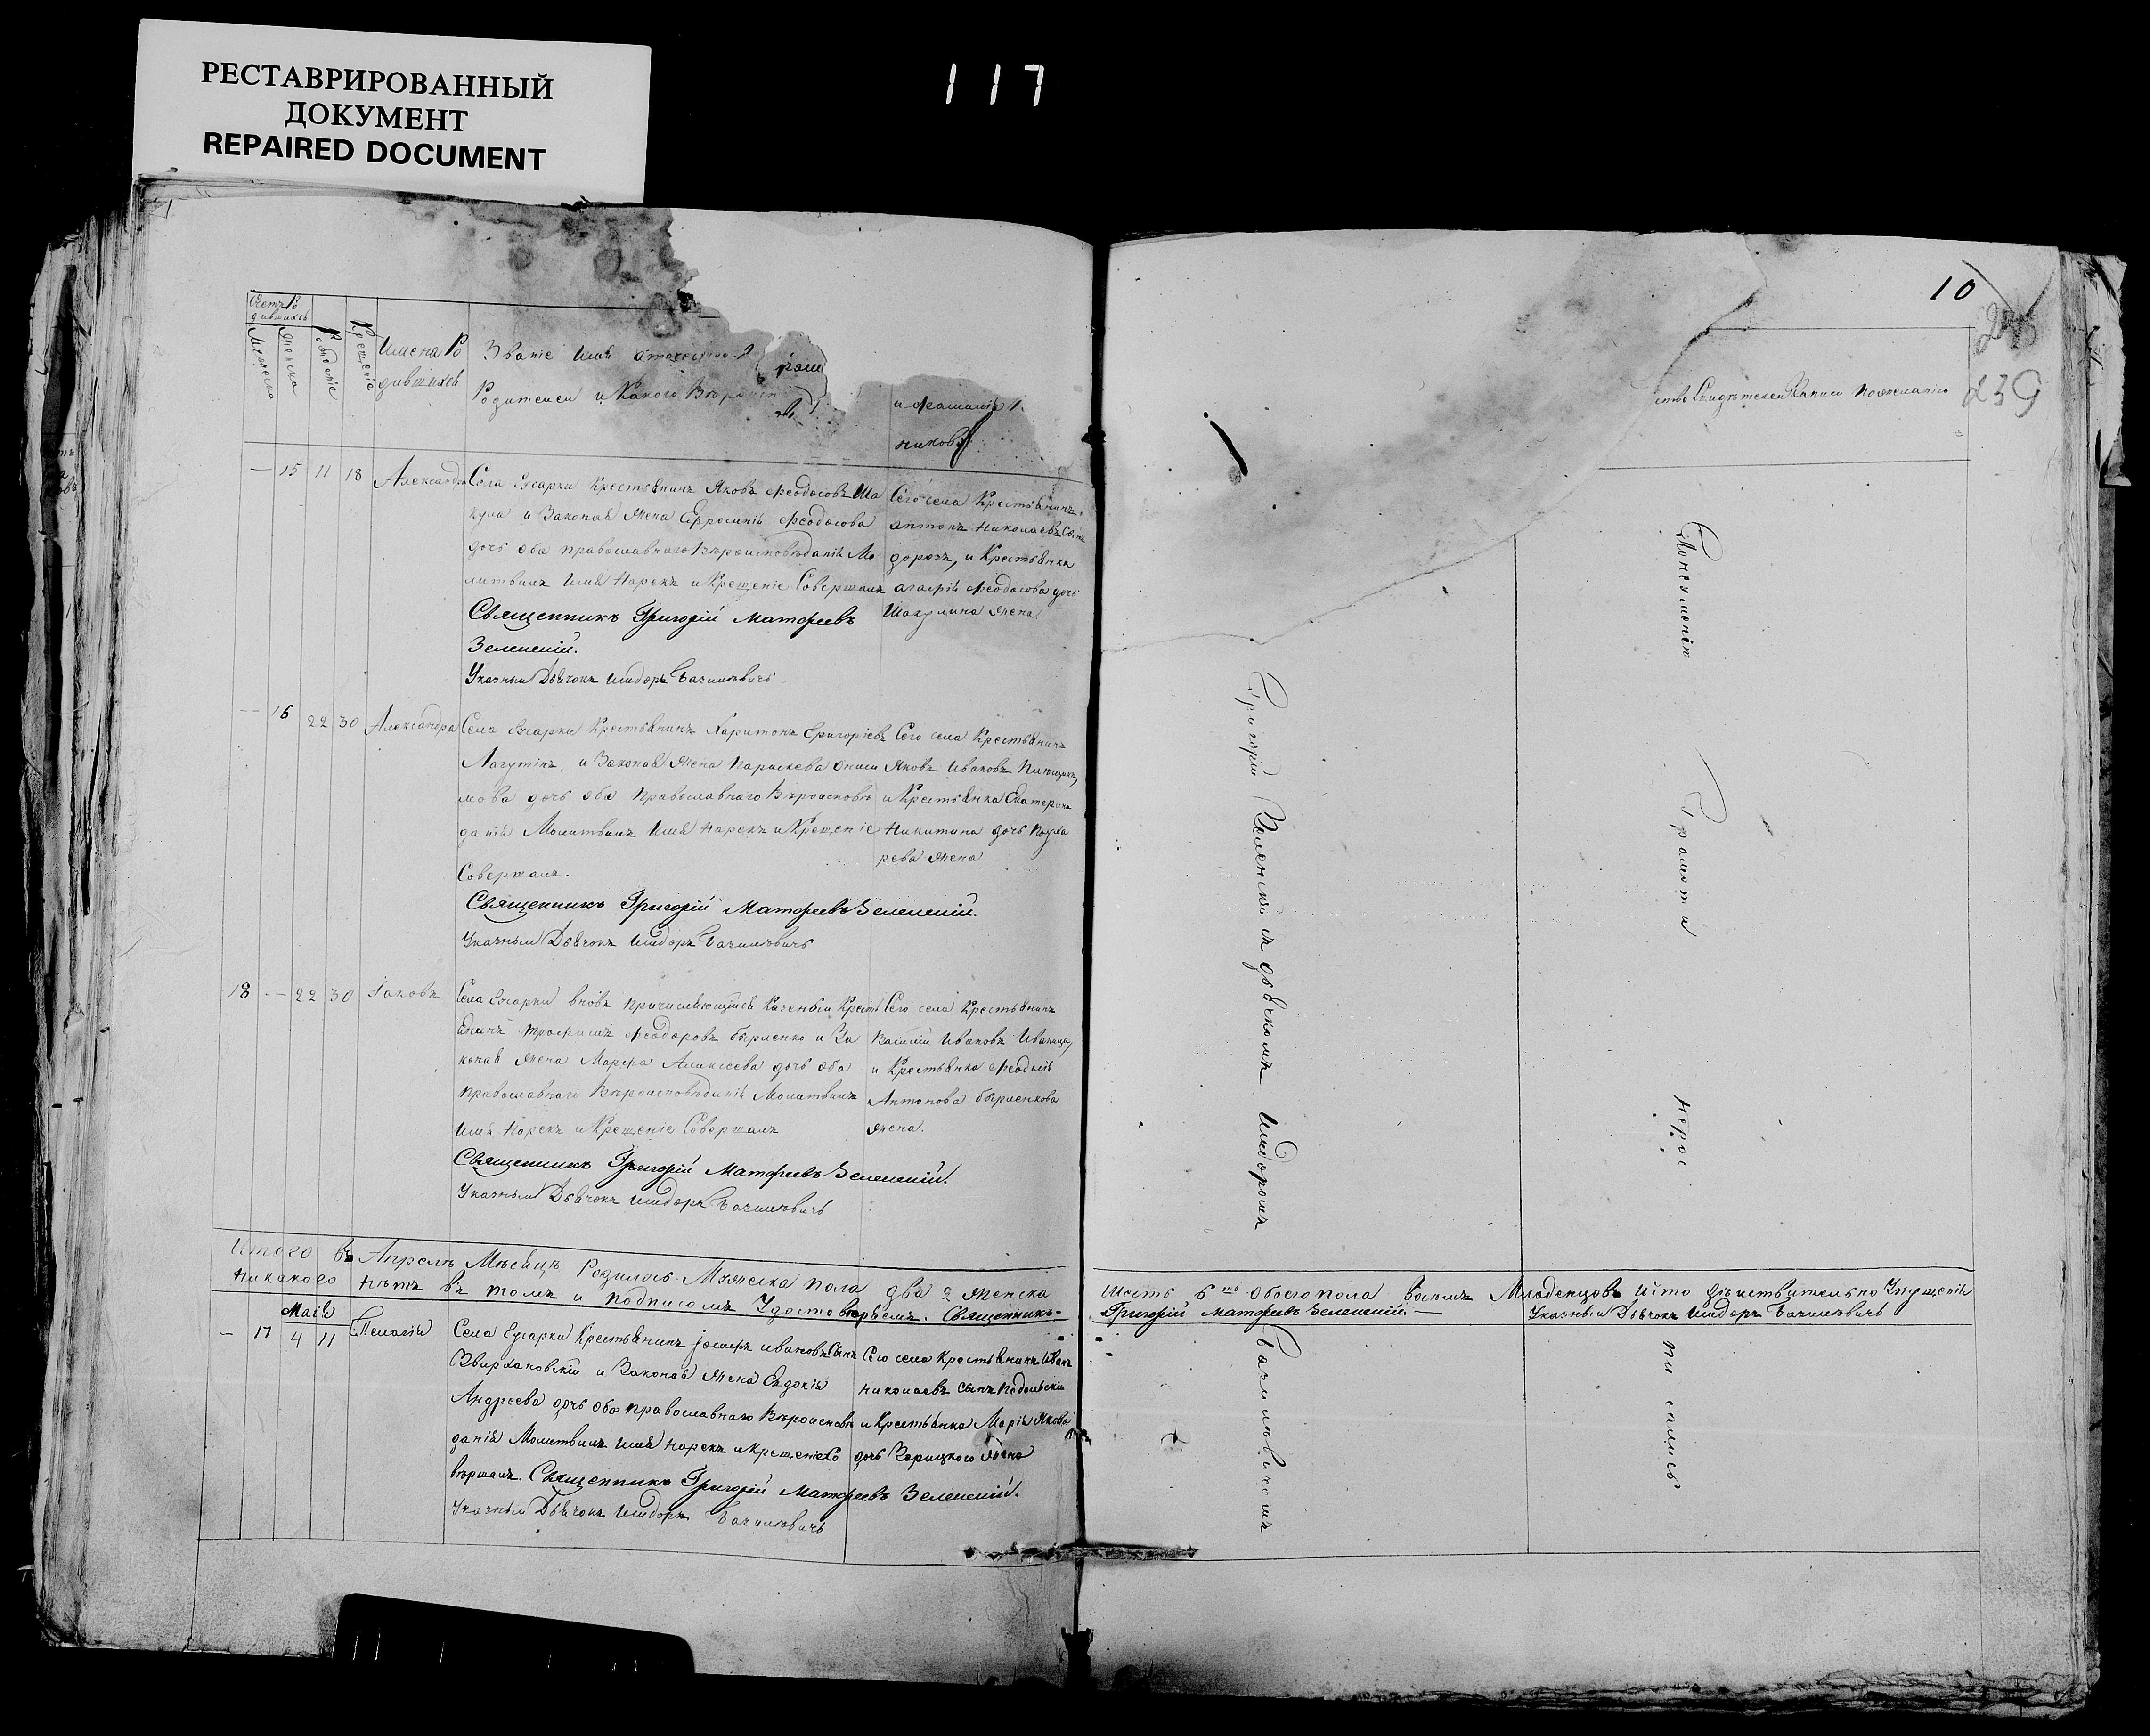 РЕСТАВРИРОВАННЫЙ
ДОКУМЕНТ
REPAIRED DOCUMENT
117
10
239
Счетъ Ро
дившихся
Мужеска
Женска
Рожденіе
Крещеніе
Имена Ро
дившихся
Званіе Имя отчество
Родителей и Какого Вѣро
и фамилія
никовъ
ство Свидѣтелей Записи По желанію
— 15 11 18 Александра
Села Ејсарки Крестьянинъ Яковъ Феодосовъ Ша
кула и Законая Жена Ефросинія Феодосова
дочь оба православнаго Вѣроисповѣданія Мо
литвилъ Имя Нарекъ и Крещеніе Совершалъ
Священникъ Григорій Матфеевъ
Зеленскій.
Указный Дьячокъ Исидоръ Базилювичь
Сего села Крестьянинъ
антонъ Николаевъ Сы
дорозъ, и Крестьянка
агафія Феодосова дочь
Шакулина Жена
— 16 22 30 Александра
Села Ејсарки Крестьянинъ Харитонъ Григоріевъ
Лагутінъ, и Законая Жена Параскева Ониси
мова дочь оба Православнаго Вѣроисповѣ
данія Молитвилъ Имя Нарекъ и Крещеніе
Совершалъ.
Священникъ Григорій Матфеевъ Зеленскій.
Указный Дьячокъ Исидоръ Базилювичь
Сего села Крестьянинъ
Яковъ Ивановъ
и Крестьянка Екатерина
Никитина дочь
рева Жена
18 — 22 30 Іаковъ
Села Ејсарки вновь причисляющійся Казеный Кресть
янинъ Трофимъ Феодоровъ Бырленко и За
коная Жена Марфа Алексеева дочь оба
православнаго Вѣроисповѣданія Молитвилъ
Имя Нарекъ и Крещеніе Совершалъ
Священникъ Григорій Матфеевъ Зеленскій.
Указный Дьячокъ Исидоръ Базилювичь
Сего села Крестьянинъ
Василій Ивановъ Иваница,
и Крестьянка Феодосія
Антонова Бырленкова
Жена.
Итого въ Апрелѣ Мѣсяцѣ Родилось Мужеска пола два 2 Женска
Шесть 6ть Обоего пола Восемь Младенцовъ и что дѣйствительно Упущенія
никакого нѣтъ въ томъ и подписомъ Удостовѣряемъ. Священникъ
Григорій Матфеевъ Зеленскій.— Указный Дьячокъ Исидоръ Базилювичь
Маія
— 17 4 11 Пелагія
Села Ејсарки Крестьянинъ Іосифъ Ивановъ Сынъ
Звирхановскій и Законая Жена Евдокія
Андреева дочь оба православнаго Вѣроисповѣ
данія Молитвилъ Имя Нарекъ и Крещеніе Со
вершалъ. Священникъ Григорій Матфеевъ Зеленскій.
Указный Дьячокъ Исидоръ Базилювичь
Сего села Крестьянинъ Иванъ
Николаевъ сынъ Подольскій
и Крестьянка Марія Якова
дочь Зарицкого Жена
Григорій Зеленскій съ дьячкомъ Исидоромъ
Базилювичемъ
По неумѣнію Грамоти нерос
писались